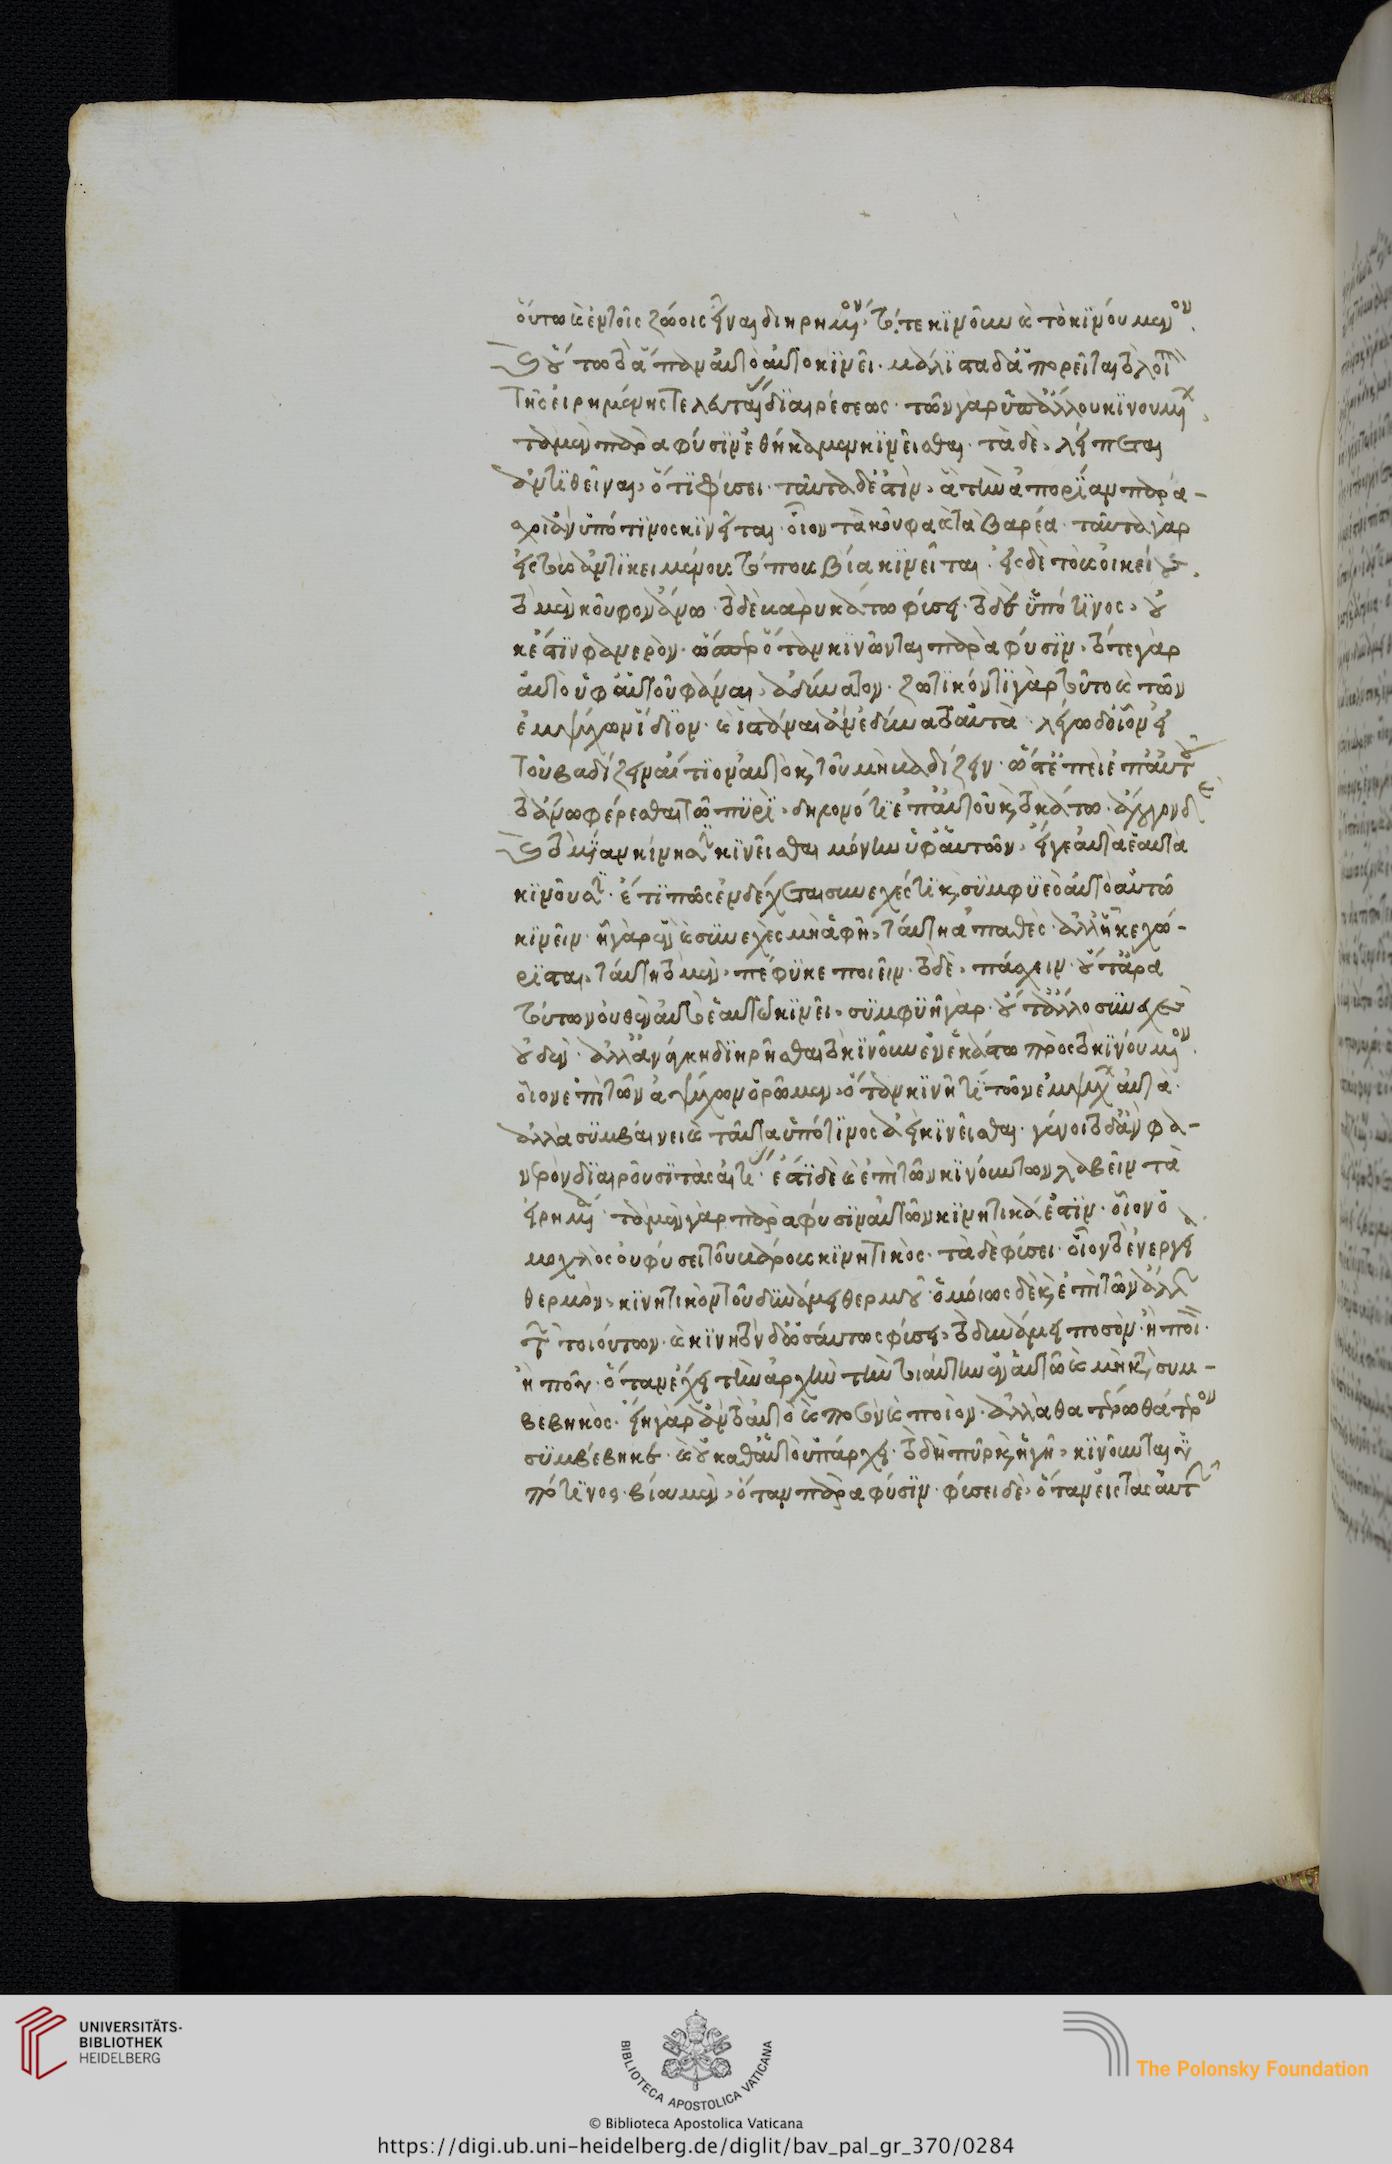 οὕτω καὶ ἐν τοῖς ζώοις εἶναι διηρημένον, τό τε κινοῦν καὶ τὸ κινούμενον.
οὕτω τὸ ἅπαν αὐτὸ αὑτὸ κινεῖ. μάλιστα δ' ἀπορεῖται τὸ λοιπὸν
τῆς εἰρημένης τελευταίας διαιρέσεως· τῶν γὰρ ὑπ' ἄλλου κινουμένων,
τὰ μὲν παρὰ φύσιν ἐθήκαμεν κινεῖσθαι· τὰ δὲ, λείπεται
ἀντιθεῖναι, ὅτι φύσει. ταῦτα δέ ἐστιν, ἃ τὴν ἀπορίαν παρά-
σχοι ἂν ὑπό τινος κινεῖται. οἷον τὰ κοῦφα καὶ τὰ βαρέα. ταῦτα γὰρ
εἰς τοὺς ἀντικειμένους τόπους βία κινεῖται. εἰς δὲ τοὺς οἰκείους.
τὸ μὲν κοῦφον ἄνω. τὸ δὲ βαρὺ κάτω φύσει. τὸ δὲ ὑπό τινος, οὐ
κέτι φανερόν. ὥσπερ ὅταν κινῶνται παρὰ φύσιν. τό τε γὰρ
αὐτὸ ὑφ' αὑτοῦ φάναι, ἀδύνατον. ζωτικόν τι γὰρ τοῦτο καὶ τῶν
ἐμψύχων ἴδιον. καὶ ἱστάναι ἂν ἐδύνατο αὑτά. λέγω δὲ οἷον εἰ
τοῦ βαδίζειν αἴτιον αὐτὸ καὶ τοῦ μὴ βαδίζειν. ὥστε ἐπεὶ ἐπ' αὐτοῦ
τὸ ἄνω φέρεσθαι τῶ πυρὶ, δῆλον ὅτι ἐπ' αὐτοῦ καὶ τὸ κάτω. ἄλογον δὲ
τὸ μίαν κίνησιν κινεῖσθαι μόνην ὑφ' αὑτῶν, εἴγε αὐτὰ ἑαυτὰ
κινοῦσιν. ἔτι πῶς ἐνδέχεται συνεχές τι καὶ συμφυὲς αὐτὸ αὑτῶ
κινεῖν. ἧ γὰρ ἓν καὶ συνεχὲς μὴ ἁφῆ, ταύτη ἀπαθές. ἀλλ' ἧ κεχώ-
ρισται, ταύτη τὸ μὲν, πέφυκε ποιεῖν. τὸ δὲ, πάσχειν. οὔτ' ἄρα
τούτων οὐθὲν αὐτὸ ἑαυτὸ κινεῖ, συμφυῆ γάρ. οὔτ' ἄλλο συνεχὲς
οὐδέν. ἀλλ' ἀνάγκη διηρῆσθαι τὸ κινοῦν ἐν ἑκάστω πρὸς τὸ κινούμενον.
οἷον ἐπὶ τῶν ἀψύχων ὁρῶμεν, ὅταν κινῆ τι τῶν ἐμψύχων αὐτά.
ἀλλὰ συμβαίνει καὶ ταῦτα ὑπό τινος ἀεὶ κινεῖσθαι. γένοιτο δ' ἂν φα-
νερὸν διαιροῦσι τὰς αἰτίας. ἔστι δὲ καὶ ἐπὶ τῶν κινούντων λαβεῖν τὰ
εἰρημένα. τὰ μὲν γὰρ παρὰ φύσιν αὐτῶν κινητικά ἐστιν. οἷον ὁ
μοχλὸς οὐ φύσει τοῦ βάρους κινητικός. τὰ δὲ φύσει. οἷον τὸ ἐνεργεία
θερμὸν, κινητικὸν τοῦ δυνάμει θερμοῦ. ὁμοίως δὲ καὶ ἐπὶ τῶν ἄλλων
τῶν τοιούτων. καὶ κινητὸν δ' ὡσαύτως φύσει, τὸ δυνάμει ποσόν. ἢ ποιόν.
ἢ πού. ὅταν ἔχη τὴν ἀρχὴν τὴν τοιαύτην ἐν αὑτῶ καὶ μὴ κατὰ συμ-
βεβηκός. εἴη γὰρ ἂν τὸ αὐτὸ καὶ ποσὸν καὶ ποιόν. ἀλλὰ θατέρω θάτερον
συμβέβηκε. καὶ οὐ καθ' αὑτὸ ὑπάρχει. τὸ δὴ πῦρ καὶ ἡ γῆ, κινοῦνται ὑ
πό τινος. βία μὲν, ὅταν παρὰ φύσιν. φύσει δὲ, ὅταν εἰς τὰς αὑτῶν
UNIVERSITÄTS-
BIBLIOTHEK
HEIDELBERG
BIBLIOTECA APOSTOLICA VATICANA
The Polonsky Foundation
© Biblioteca Apostolica Vaticana
https://digi.ub.uni-heidelberg.de/diglit/bav_pal_gr_370/0284